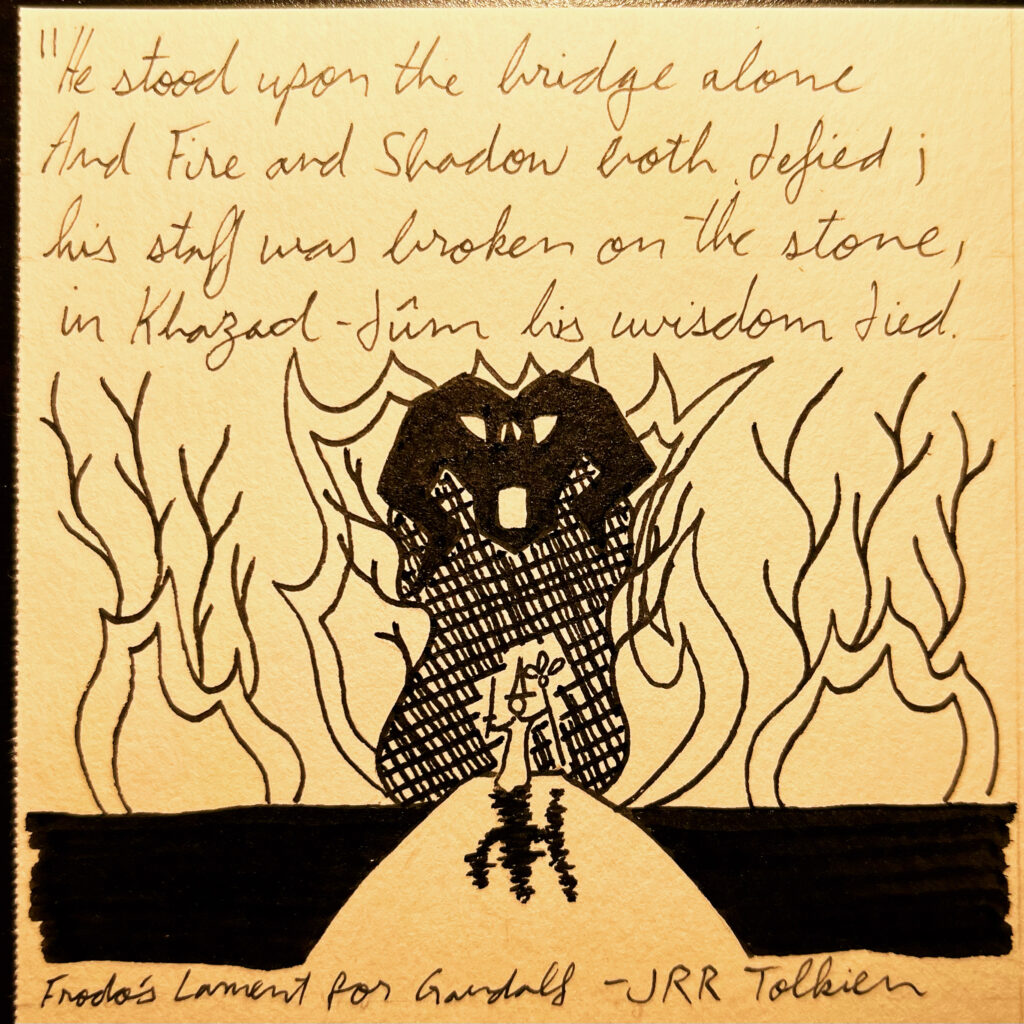 "He stood upon the bridge alone
And Fire and Shadow both defied;
his staff was broken on the stone,
in Khazad-dûm his wisdom died.
Frodo's Lament for Gandalf -JRR Tolkien